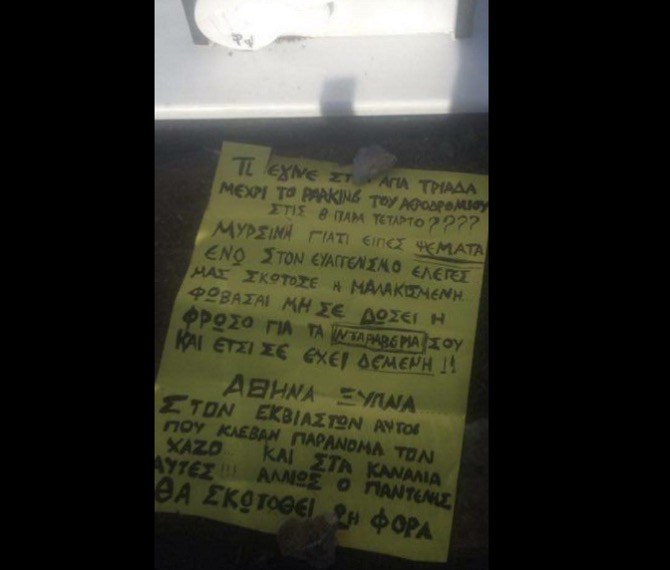 ΤΙ ΕΓΙΝΕ ΣΤΗΝ ΑΓΙΑ ΤΡΙΑΔΑ
ΜΕΧΡΙ ΤΟ PARKING ΤΟΥ
ΣΤΙΣ 8 ΠΑΡΑ ΤΕΤΑΡΤΟ????
ΜΥΡΣΙΝΗ ΓΙΑΤΙ ΕΙΠΕΣ ΨΕΜΑΤΑ
ΕΝΩ ΣΤΟΝ ΕΥΑΓΓΕΛΙΣΜΟ ΕΛΕΓΕΣ
ΜΑΣ ΣΚΟΤΩΣΕ Η ΜΑΛΑΚΙΣΜΕΝΗ
ΦΟΒΑΣΑΙ ΜΗ ΣΕ ΔΩΣΕΙ Η
ΦΡΩΣΟ ΓΙΑ ΤΑ ΝΤΑΡΑΒΕΡΙΑ ΣΟΥ
ΚΑΙ ΕΤΣΙ ΣΕ ΕΧΕΙ ΔΕΜΕΝΗ !!
ΑΘΗΝΑ ΞΥΠΝΑ
ΣΤΟΝ ΕΚΒΙΑΣΤΩΝ ΑΥΤΟΙ
ΠΟΥ ΚΛΕΒΑΝ ΠΑΡΑΝΟΜΑ ΤΟΝ
ΧΑΖΟ ΚΑΙ ΣΤΑ ΚΑΝΑΛΙΑ
ΑΥΤΕΣ!!! ΑΛΛΙΩΣ Ο ΠΑΝΤΕΛΗΣ
ΘΑ ΣΚΟΤΩΘΕΙ 2Η ΦΟΡΑ